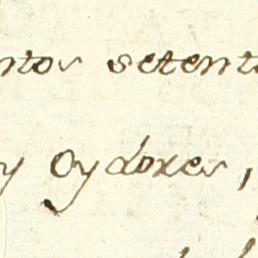 ntos setent
y Oydores,